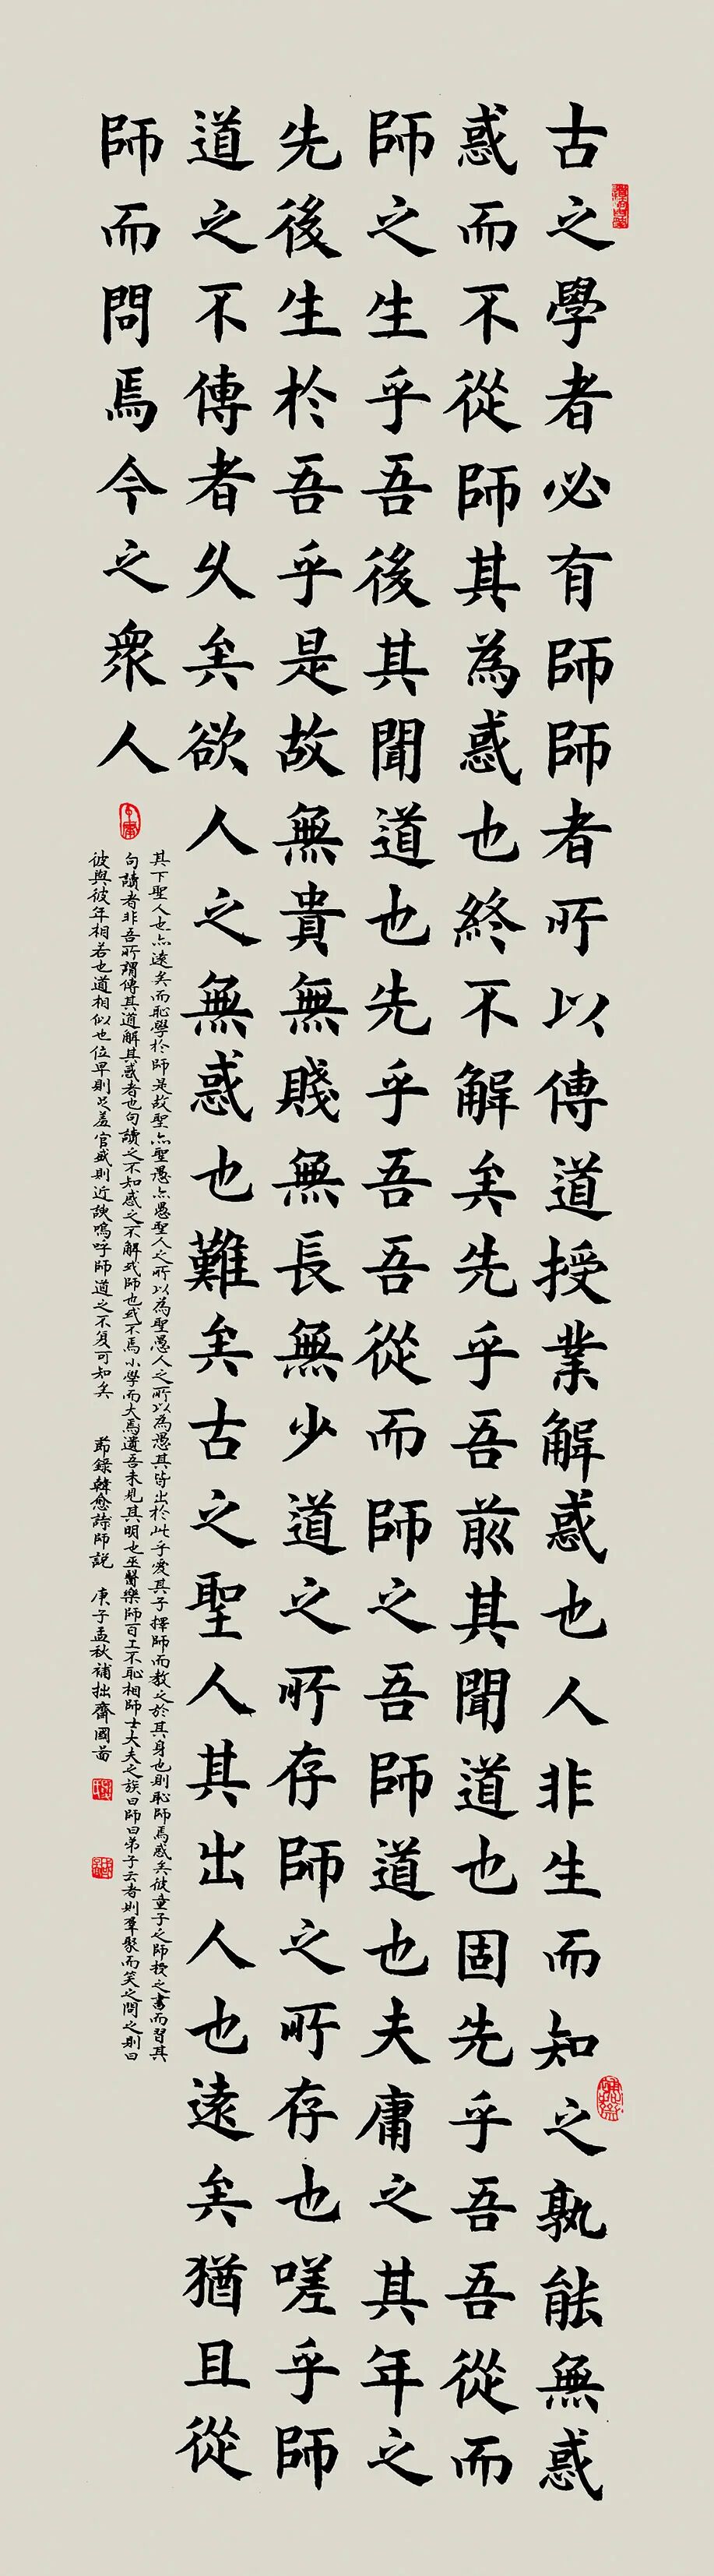 古之學者必有師師者所以傳道授業解惑也人非生而知之孰能無惑
惑而不從師其為惑也終不解矣先乎吾前其聞道也固先乎吾吾從而
師之生乎吾後其聞道也先乎吾吾從而師之吾師道也夫庸之其年之
先後生於吾乎是故無貴無賤無長無少道之所存師之所存也嗟乎師
道之不傳者久矣欲人之無惑也難矣古之聖人其出人也遠矣猶且從
師而問焉今之衆人
其下聖人也亦遠矣而恥學於師是故聖亦聖愚亦愚聖人之所以為聖愚人之所以為愚其皆出於此乎愛其子擇師而教之於其身也則恥師焉惑矣彼童子之師授之書而習其
句讀者非吾所謂傳其道解其惑者也句讀之不知惑之不解或師也或不焉小學而大焉遺吾未見其明也巫醫樂師百工不恥相師士大夫之族曰師曰弟子云者則羣聚而笑之問之則曰
彼與彼年相若也道相似也位卑則足羞官盛則近諛嗚呼師道之不复可知矣 節錄韓愈詩師説 庚子孟秋補拙齋國苗